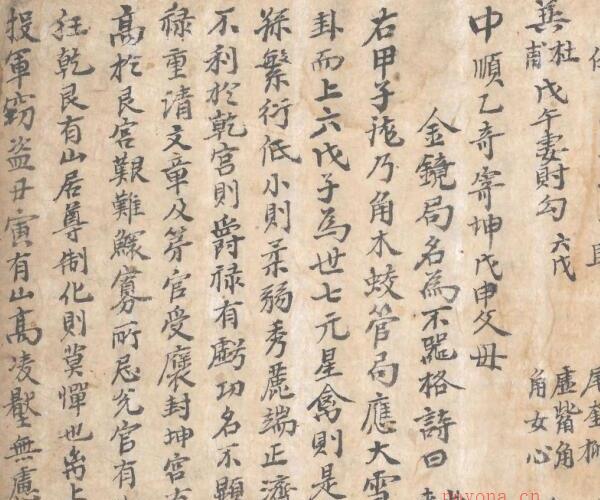 巽 杜 戊午妻財勾 六戊 尾奎柳
虛觜角
角女心
中順乙奇寄坤戊申父母
金鏡局名為不器格詩曰
右甲子讬乃角木蛟管局應大雪
卦而上六戊子為世七元星禽則是
孫繁衍低小則柔弱秀麗端正濟
不利於乾宮則爵祿有虧功名不顯
祿重清文章及第官受褒封坤宮有
高於艮宮艱難鰥寡所忌兌官有
狂乾艮有山居尊制化則莫憚也离上
投軍竊盜丑寅有山高凌壓無慮
nayona.cn